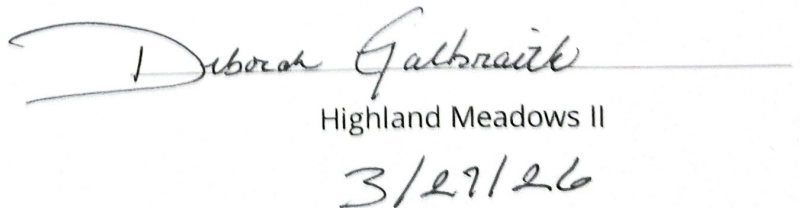 Deborah Galbraith
Highland Meadows II
3/27/26